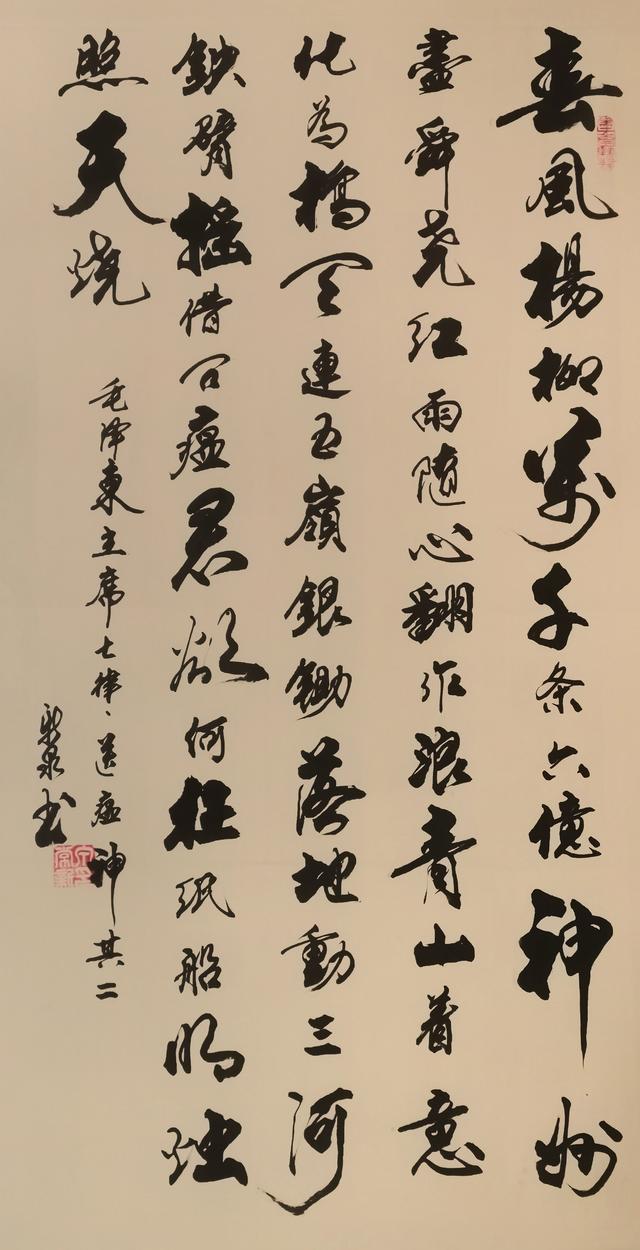 春風楊柳萬千条六億神州
盡舜尧红雨随心翻作浪青山着意
化為橋天連五嶺銀鋤落地動三河
鉄臂摇借问瘟君欲何往纸船明烛
照天烧
毛泽東主席七律、送瘟神其二
泉书